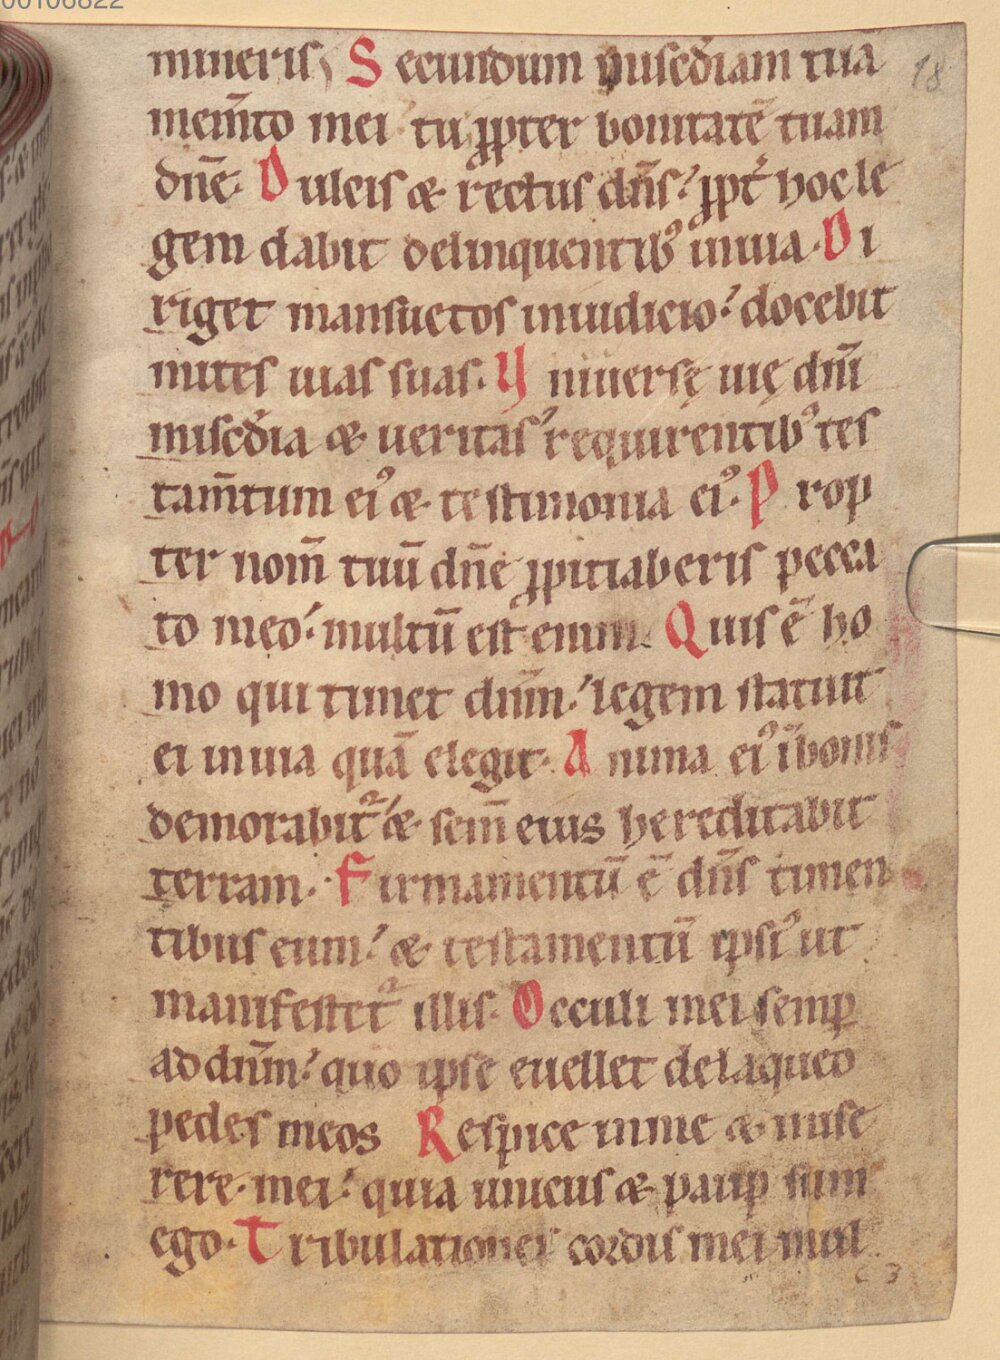 00106822
18
mineris, Secundum misc̄diam tua
mem̄to mei tu ꝓpter bonitatē tuam
dn̄e. Dulcis & rectus dn̄s: ꝓpt̄ hoc le
gem dabit delinquentib⁹ in uia. Di
riget mansuetos in iudicio: docebit
mites uias suas. Vniuersę uię dn̄i
misc̄dia & ueritas requirentib⁹ tes
tam̄tum ei⁹ & testimonia ei⁹. Prop
ter nom̄ tuū dn̄e ꝓpitiaberis pecca
to meo: multū est enim. Quis ē ho
mo qui timet dn̄m: legem statuit
ei in uia quā elegit. Anima ei⁹ ī bonis
demorabit᷑ & sem̄ eius hereditabit
terram. Firmamentū ē dn̄s timen
tibus eum: & testamentū ipsi⁹ ut
manifestet᷑ illis. Occuli mei semꝑ
ad dn̄m: quo ipse euellet de laqueo
pedes meos Respice in me & mise
rere mei: quia unicus & pauꝑ sum
ego. Tribulationes cordis mei mul
c 3